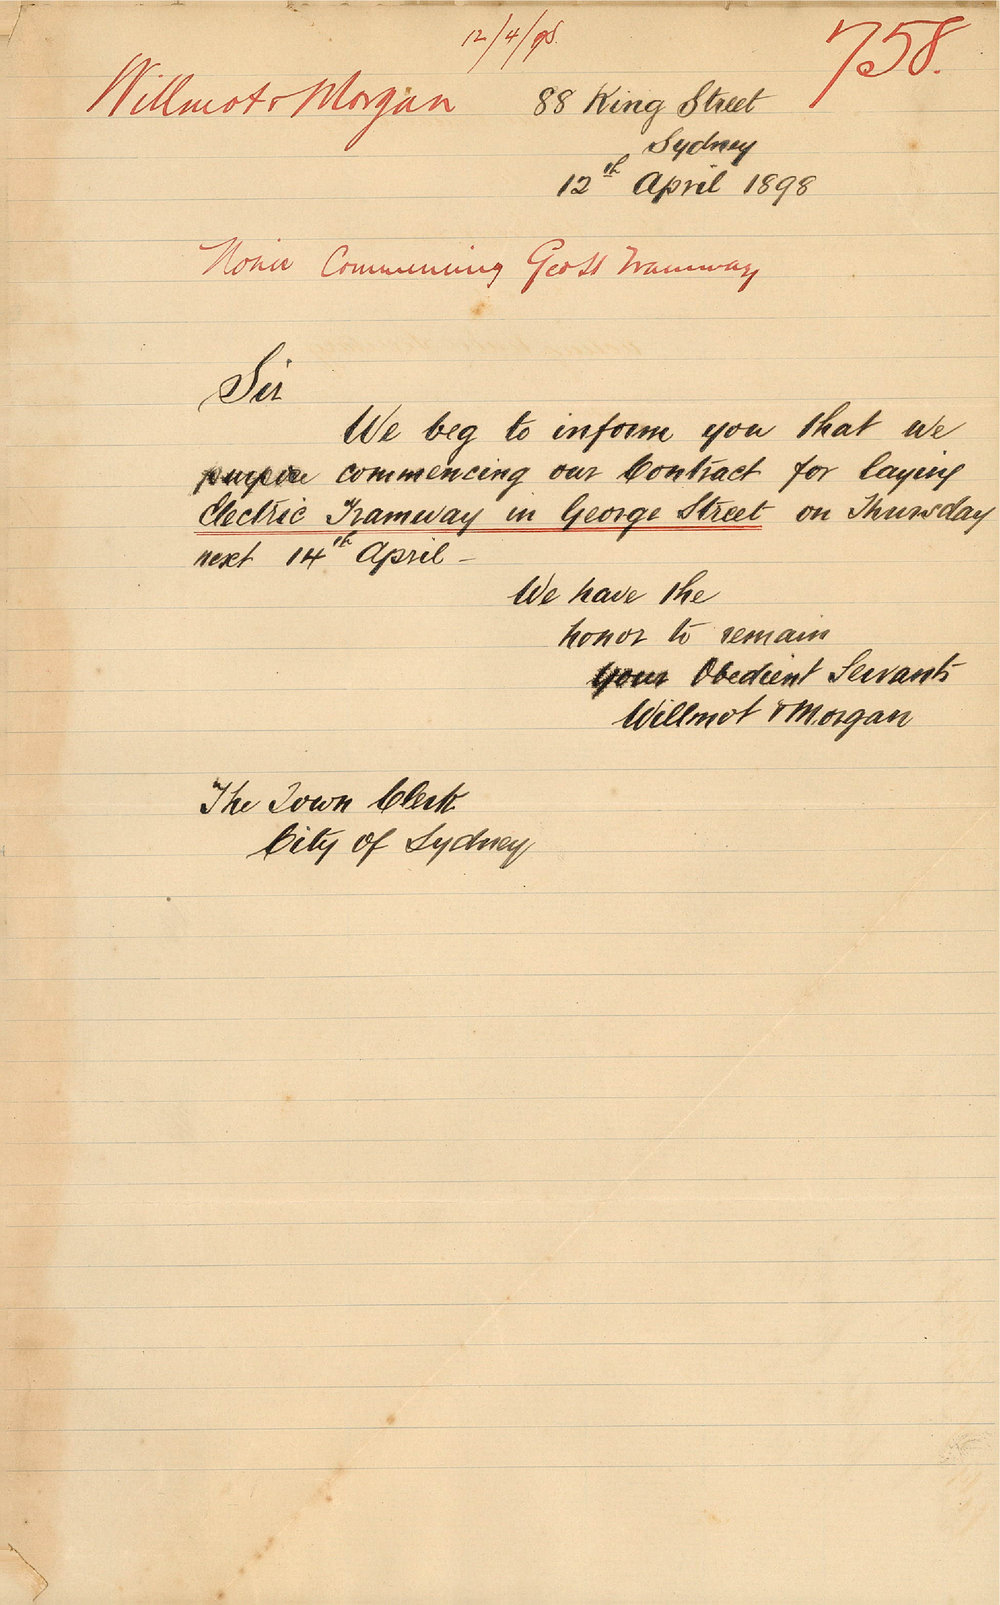 12/4/98.
758.
Willmot & Morgan
88 King Street
Sydney
12th April 1898
Notice Commencing Geo St Tramway
Sir
We beg to inform you that we
purpose commencing our Contract for laying
Electric Tramway in George Street on Thursday
next 14th April -
We have the
honor to remain
your Obedient Servants
Willmot & Morgan
The Town Clerk
City of Sydney